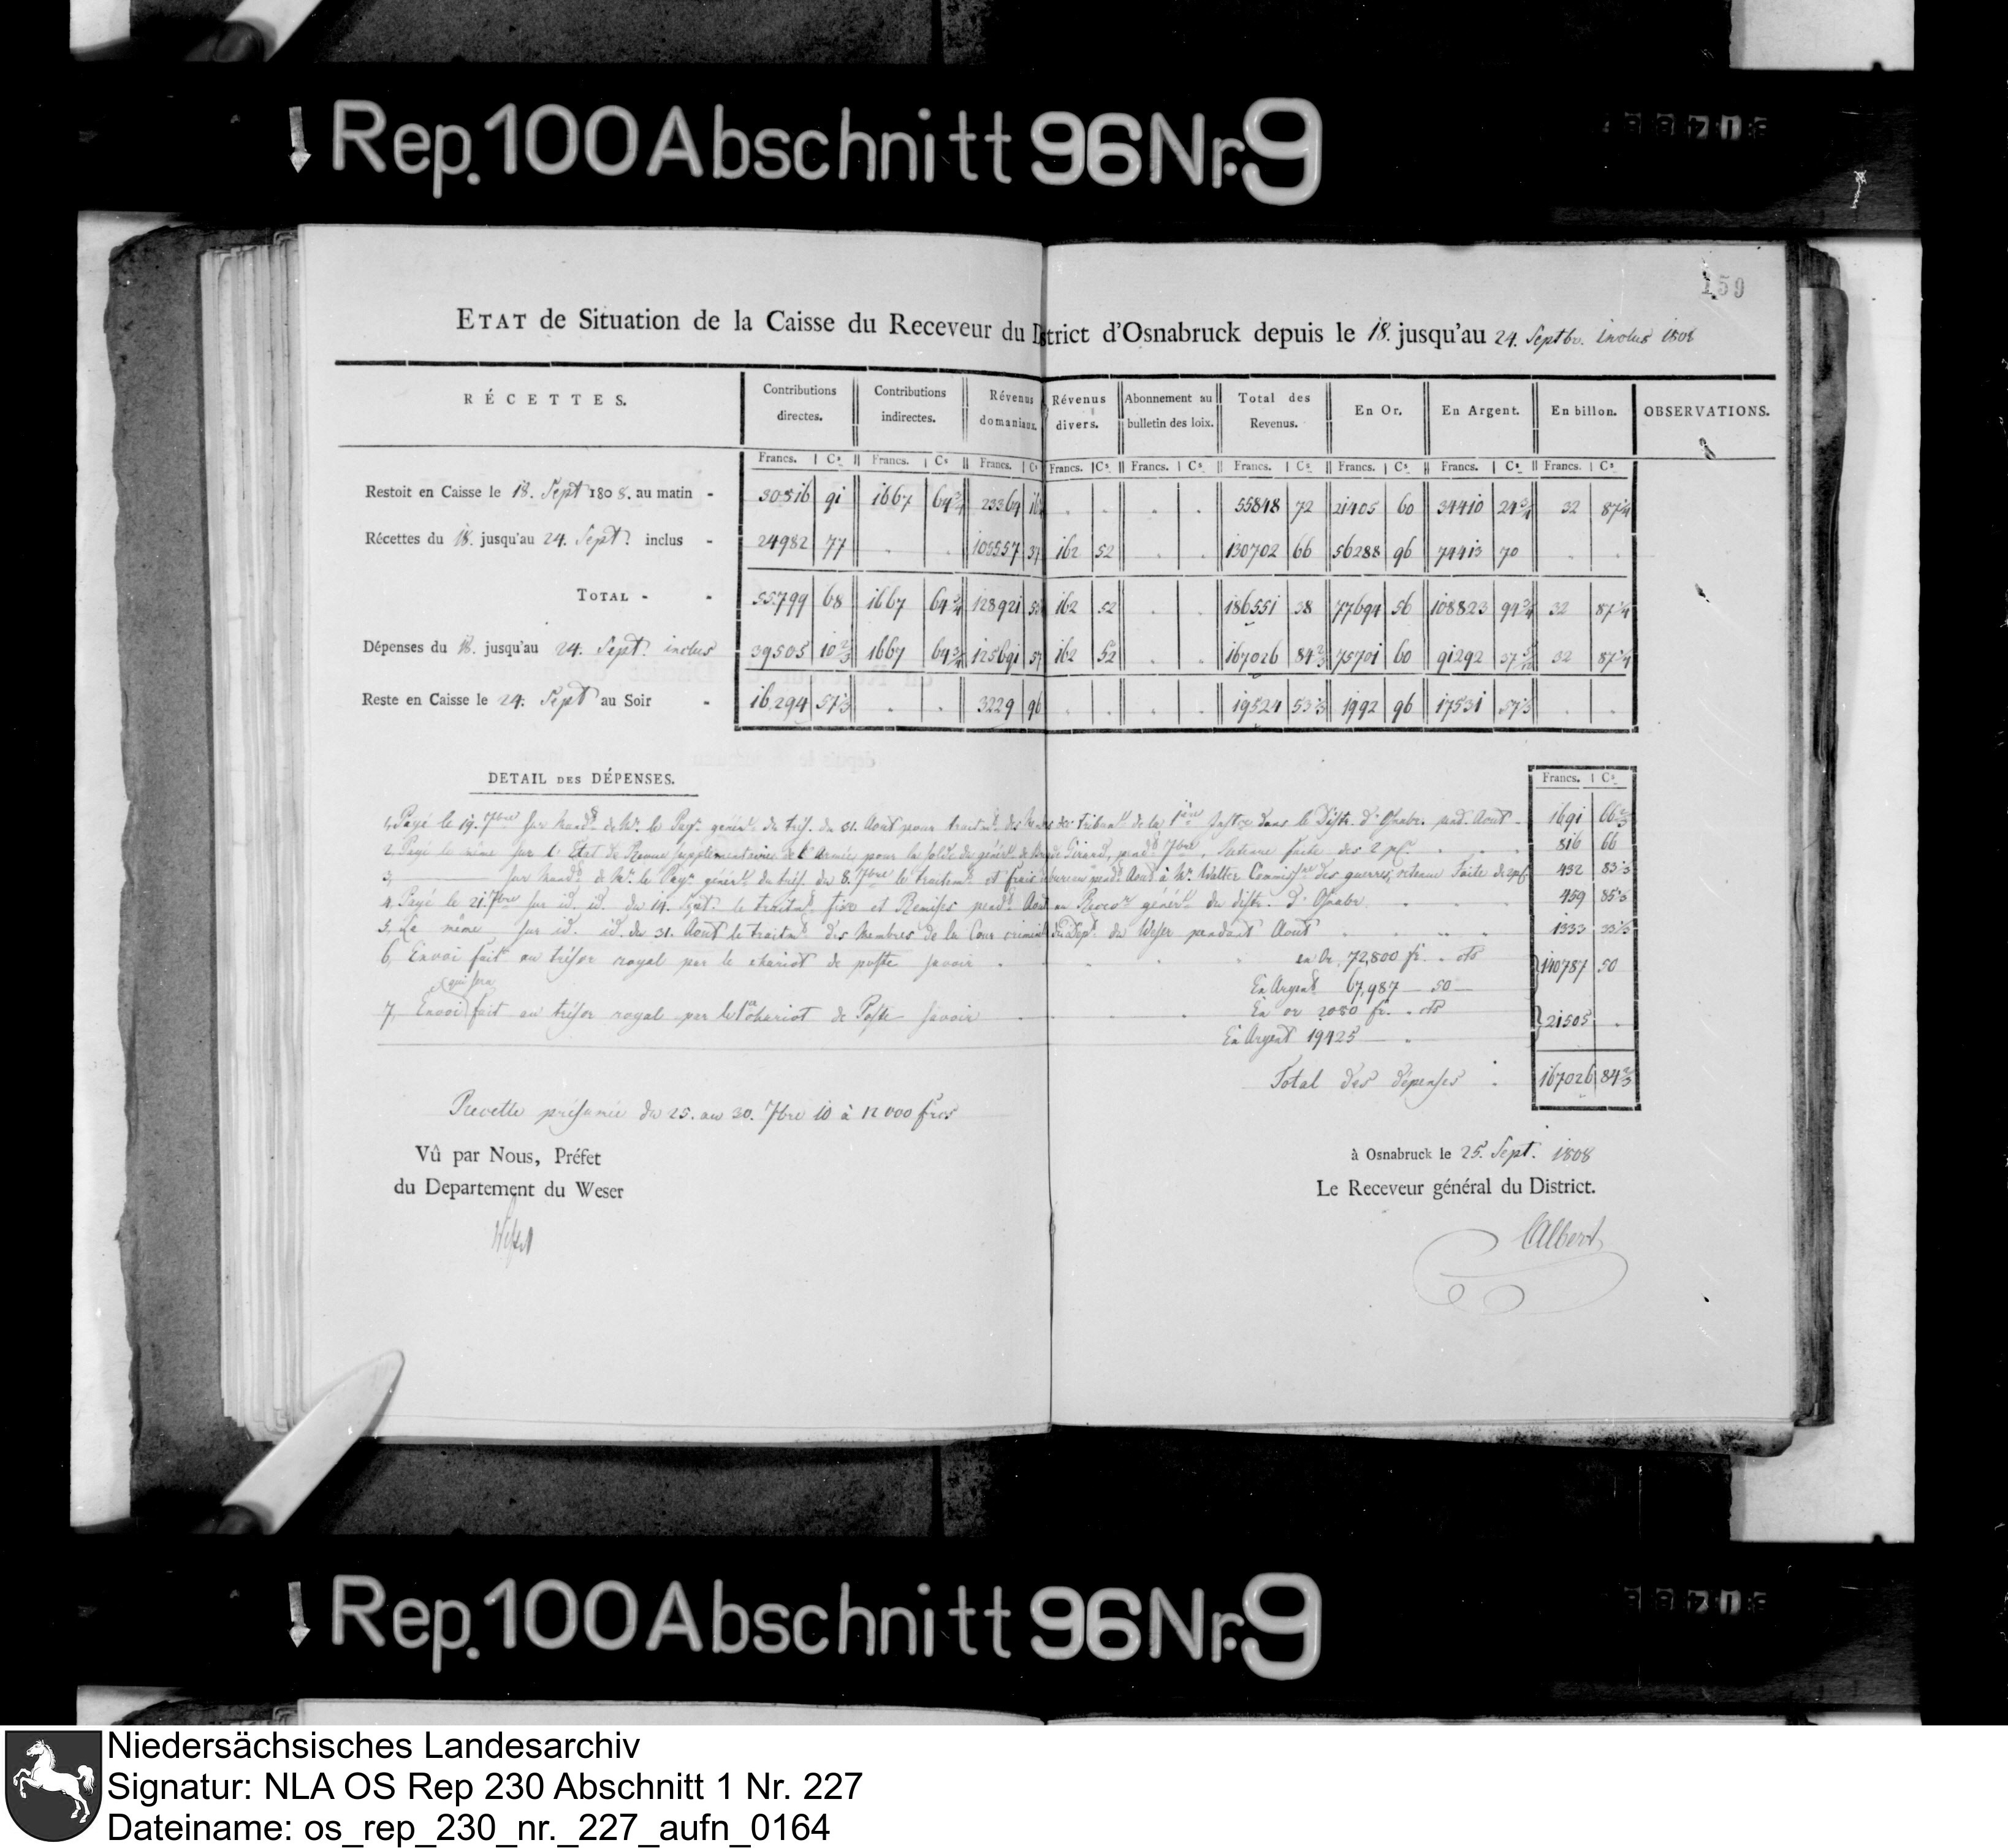 Rep. 100 Abschnitt 96 Nr. 9
159
ETAT de Situation de la Caisse du Receveur du District d'Osnabruck depuis le 18. jusqu'au 24. Septbr. inclus 1808
RÉCETTES. Contributions directes. Contributions indirectes. Révenus domaniaux. Révenus divers. Abonnement au bulletin des loix. Total des Revenus. En Or. En Argent. En billon. OBSERVATIONS.
Francs. Cs Francs. Cs Francs. Cs Francs. Cs Francs. Cs Francs. Cs Francs. Cs Francs. Cs Francs. Cs
Restoit en Caisse le 18. Sept 1808. au matin - 30816 91 1667 64 3/4 23364 16 . . . . 55848 72 21405 60 34410 24 3/4 32 87 1/4
Récettes du 18. jusqu'au 24. Sept. inclus - 24982 77 . . 105557 37 162 52 . . 130702 66 56288 96 74413 70 . .
TOTAL - - 55799 68 1667 64 3/4 128921 53 162 52 . . 186551 38 77694 56 108823 94 3/4 32 87 1/4
Dépenses du 18. jusqu'au 24. Sept. inclus 39505 10 2/3 1667 64 3/4 125691 57 162 52 . . 167026 84 2/3 75701 60 91292 37 5/12 32 87 1/4
Reste en Caisse le 24. Sept au Soir - 16294 57 1/3 . . 3229 96 . . . . 19524 53 1/3 1992 96 17531 57 1/3 . .
DETAIL DES DÉPENSES.
Francs. Cs
1, Payé le 19. 7bre sur Mandt de Mr. le Payr génért du trés. du 31. Aout pour traitmt des Membres des tribunaux de la 1ère Instce dans le Distr. d'Osnabr. pend. Aout - 1691 66 2/3
2, Payé le même sur l'Etat de Revue supplementaire de l'Armée pour la solde du génért de Girard, pendt 7bre, Retenue faite des 2 pC. 816 66
3, sur Mandt de Mr. le Payr génért du trés. du 8. 7bre le traitemt et frais de bureau pendt Aout à Mr. Walter Commissre des guerres, retenue faite de 2 pC 432 83 1/3
4, Payé le 21. 7bre sur id. id. du 14. Sept. le traitmt fixe et Remises pendt Aout au Recevr génért du distr. d'Osnabr. 459 85 1/3
5, Le même sur id. id. du 31. Aout le traitmt des Membres de la Cour criminle du Dept du Weser pendant Aout 1333 33 1/3
6, Envoi fait au trésor royal par le chariot de poste savoir . en Or 72,800 fr. . cts
En Argent 67,987 — 50 — 140787 50
qui sera
7, Envoi fait au trésor royal par le chariot de Poste savoir En or 2080 fr. . cts
En Argent 19425 — . 21505 .
Total des dépenses . 167026 84 2/3
Recette présumée du 25. au 30. 7bre 10 à 12000 frcs
Vû par Nous, Préfet
du Departement du Weser
à Osnabruck le 25. Sept. 1808
Le Receveur général du District.
Albert
Rep. 100 Abschnitt 96 Nr. 9
Niedersächsisches Landesarchiv
Signatur: NLA OS Rep 230 Abschnitt 1 Nr. 227
Dateiname: os_rep_230_nr._227_aufn_0164